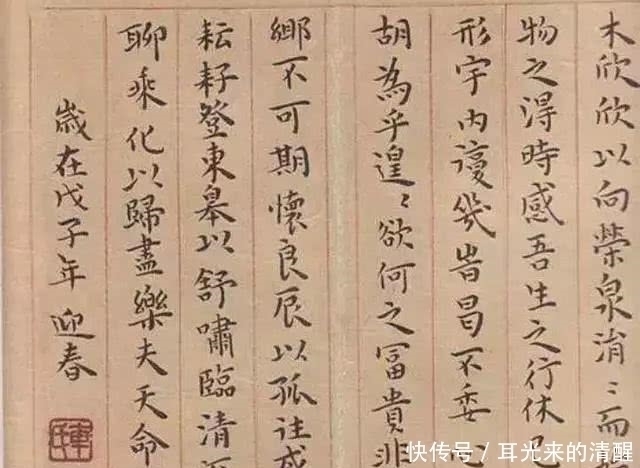 木欣欣以向榮泉涓〻而
物之得時感吾生之行休
形宇内復幾旹曷不委心
胡為乎遑〻欲何之富貴非
鄉不可期懷良辰以孤往或
耘耔登東皋以舒嘯臨清
聊乘化以歸盡樂夫天命
歲在戊子年迎春
快传号／耳光来的清醒